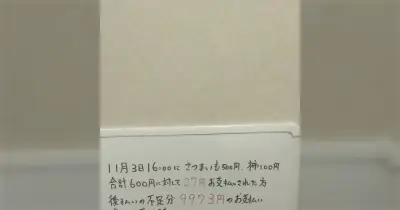 11月3日16:00に さつまいも500円、柿100円
合計600円に対して 27円お支払いされた方
後払いの不足分 9973円のお支払い